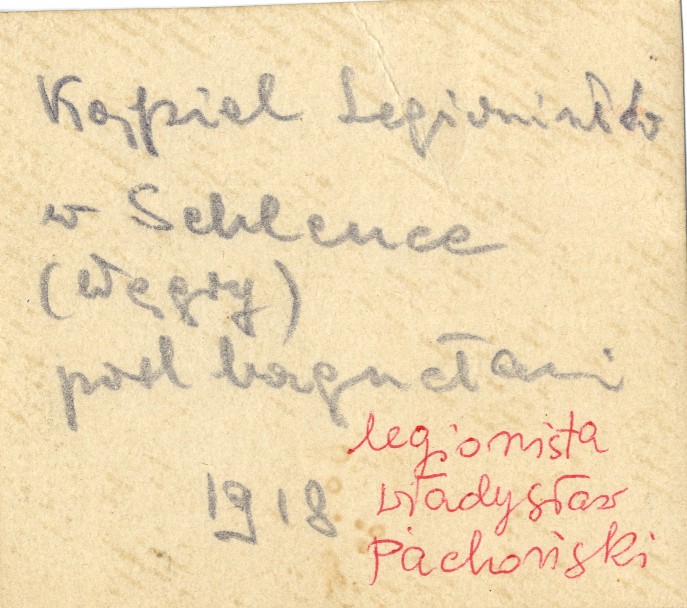 Kąpiel Legionistów
w Sehlence
(Węgry)
pod bagnetami
1918
legionista
Władysław
Pachoński